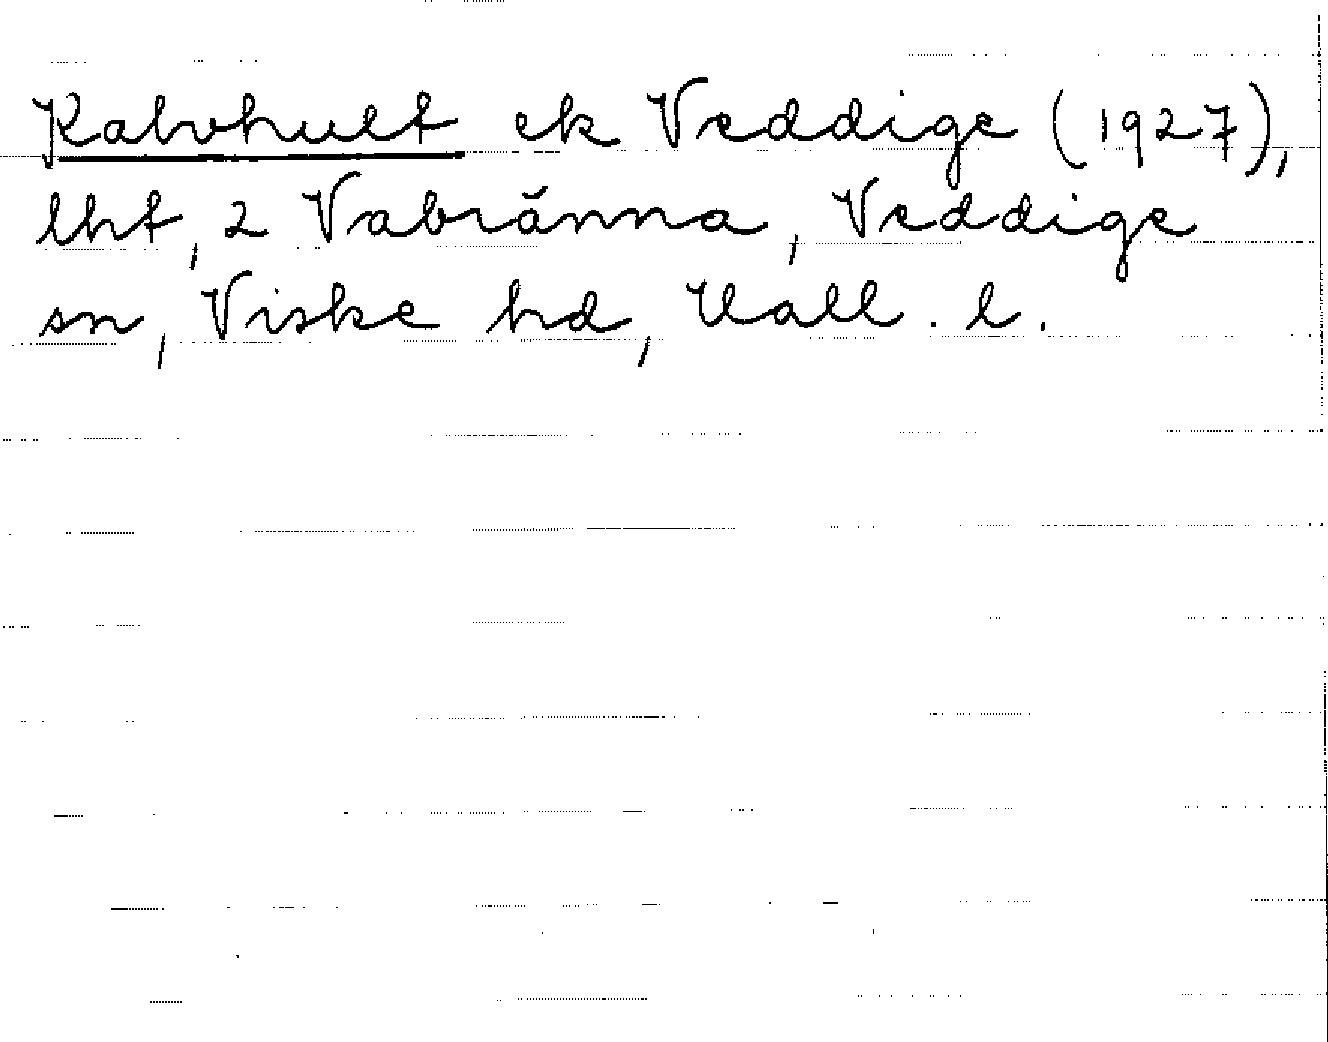 Kalvhult ek Veddige (1927),
lht, 2 Vabränna, Veddige
sn, Viske hd, Hall. l.